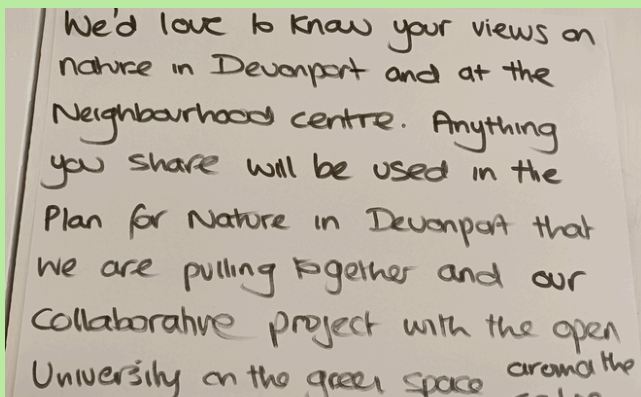 We'd love to know your views on
nature in Devonport and at the
Neighbourhood centre. Anything
you share will be used in the
Plan for Nature in Devonport that
we are pulling together and our
Collaborative project with the open
University on the green space around the